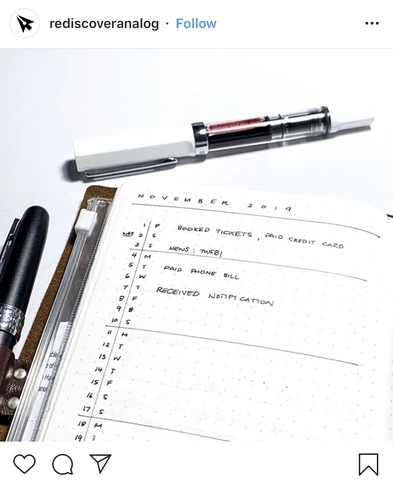 rediscoveranalog · Follow
NOVEMBER 2019
1 F BOOKED TICKETS, PAID CREDIT CARD
2 S
3 S NEWS: TWSBI
4 M
5 T PAID PHONE BILL
6 W
7 T RECEIVED NOTIFICATION
8 F
9 S
10 S
11 M
12 T
13 W
14 T
15 F
16 S
17 S
18 M
19 T